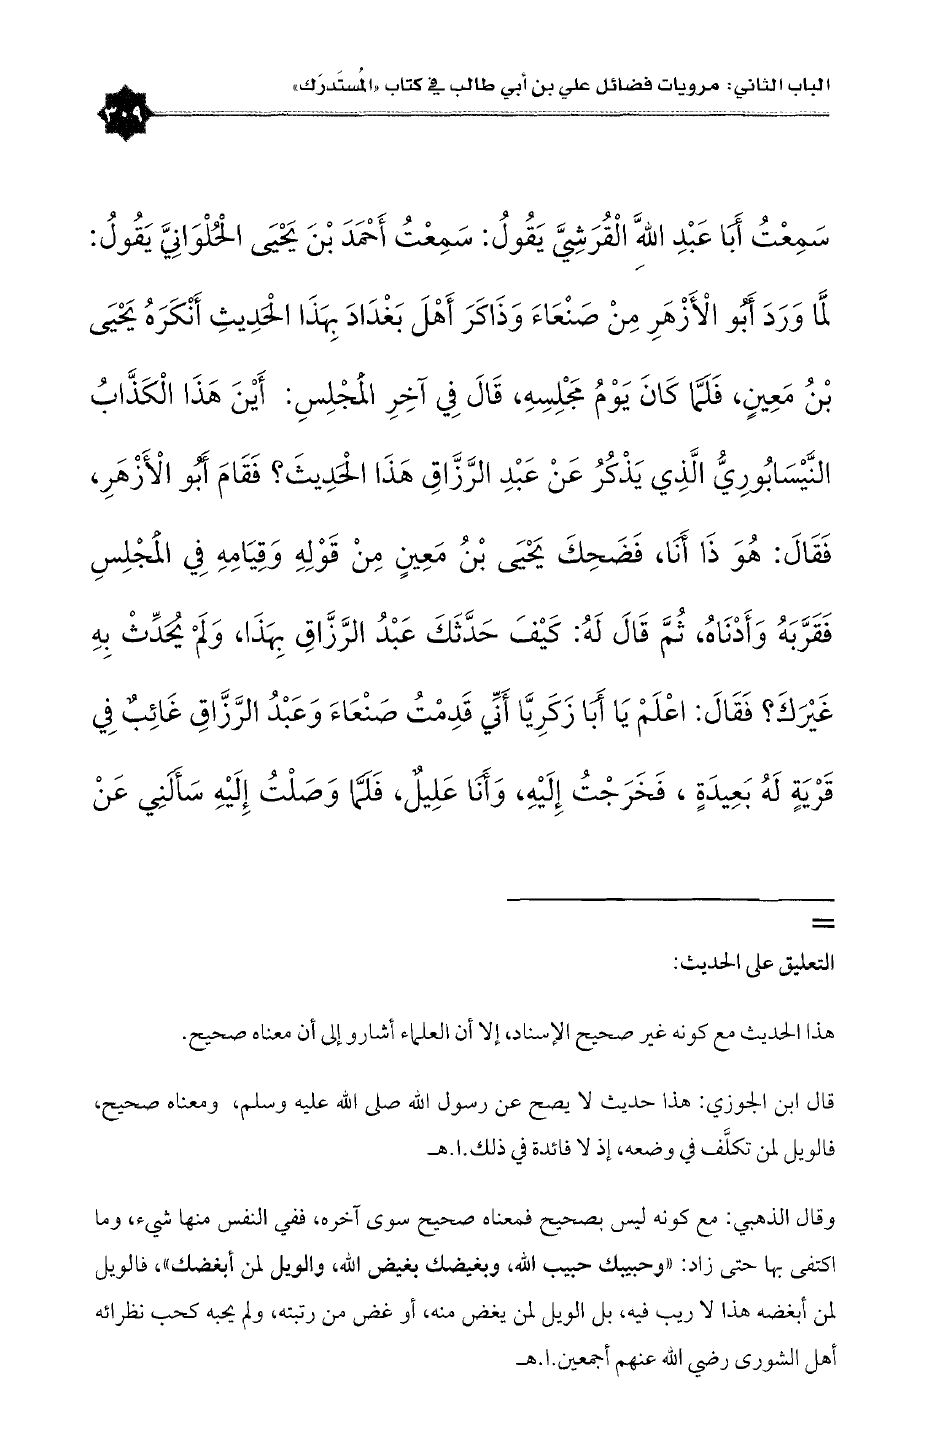 الباب الثاني: مرويات فضائل علي بن أبي طالب في كتاب «المُستَدرَك»
٣٠٩
سَمِعْتُ أَبَا عَبْدِ اللهِ الْقُرَشِيَّ يَقُولُ: سَمِعْتُ أَحْمَدَ بْنَ يَحْيَى الْحُلْوَانِيَّ يَقُولُ:
لَمَّا وَرَدَ أَبُو الْأَزْهَرِ مِنْ صَنْعَاءَ وَذَاكَرَ أَهْلَ بَغْدَادَ بِهَذَا الْحَدِيثِ أَنْكَرَهُ يَحْيَى
بْنُ مَعِينٍ، فَلَمَّا كَانَ يَوْمُ مَجْلِسِهِ، قَالَ فِي آخِرِ الْمَجْلِسِ: أَيْنَ هَذَا الْكَذَّابُ
النَّيْسَابُورِيُّ الَّذِي يَذْكُرُ عَنْ عَبْدِ الرَّزَّاقِ هَذَا الْحَدِيثَ؟ فَقَامَ أَبُو الْأَزْهَرِ،
فَقَالَ: هُوَ ذَا أَنَا، فَضَحِكَ يَحْيَى بْنُ مَعِينٍ مِنْ قَوْلِهِ وَقِيَامِهِ فِي الْمَجْلِسِ
فَقَرَّبَهُ وَأَدْنَاهُ، ثُمَّ قَالَ لَهُ: كَيْفَ حَدَّثَكَ عَبْدُ الرَّزَّاقِ بِهَذَا، وَلَمْ يُحَدِّثْ بِهِ
غَيْرَكَ؟ فَقَالَ: اعْلَمْ يَا أَبَا زَكَرِيَّا أَنِّي قَدِمْتُ صَنْعَاءَ وَعَبْدُ الرَّزَّاقِ غَائِبٌ فِي
قَرْيَةٍ لَهُ بَعِيدَةٍ ، فَخَرَجْتُ إِلَيْهِ، وَأَنَا عَلِيلٌ، فَلَمَّا وَصَلْتُ إِلَيْهِ سَأَلَنِي عَنْ
=
التعليق على الحديث:
هذا الحديث مع كونه غير صحيح الإسناد، إلا أن العلماء أشارو إلى أن معناه صحيح.
قال ابن الجوزي: هذا حديث لا يصح عن رسول الله صلى الله عليه وسلم، ومعناه صحيح،
فالويل لمن تكلَّف في وضعه، إذ لا فائدة في ذلك.ا.هـ
وقال الذهبي: مع كونه ليس بصحيح فمعناه صحيح سوى آخره، ففي النفس منها شيء، وما
اكتفى بها حتى زاد: «وحبيبك حبيب الله، وبغيضك بغيض الله، والويل لمن أبغضك»، فالويل
لمن أبغضه هذا لا ريب فيه، بل الويل لمن يغض منه، أو غض من رتبته، ولم يحبه كحب نظرائه
أهل الشورى رضي الله عنهم أجمعين.ا.هـ